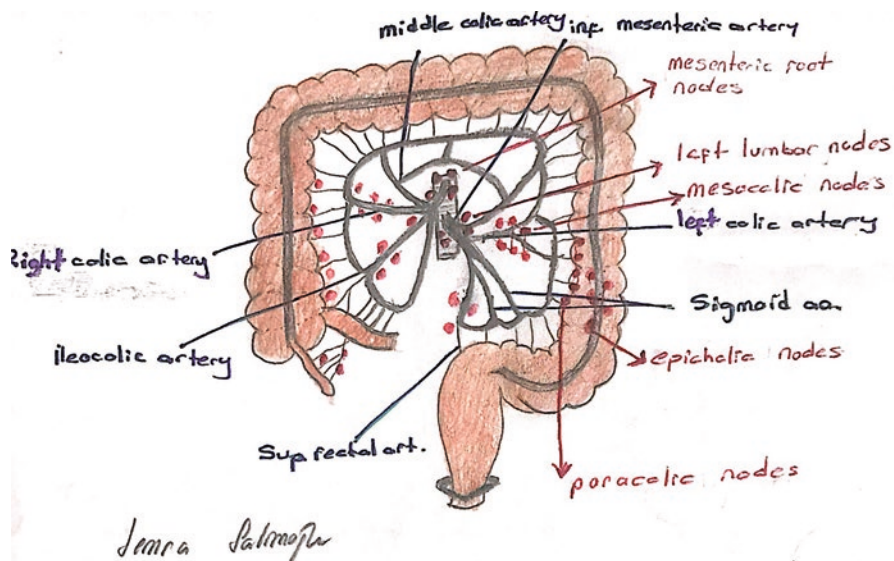 middle colic artery
inf. mesenteric artery
mesenteric root
nodes
left lumbar nodes
mesocolic nodes
left colic artery
Right colic artery
Sigmoid aa.
ileocolic artery
epichalic nodes
Sup rectal art.
paracolic nodes